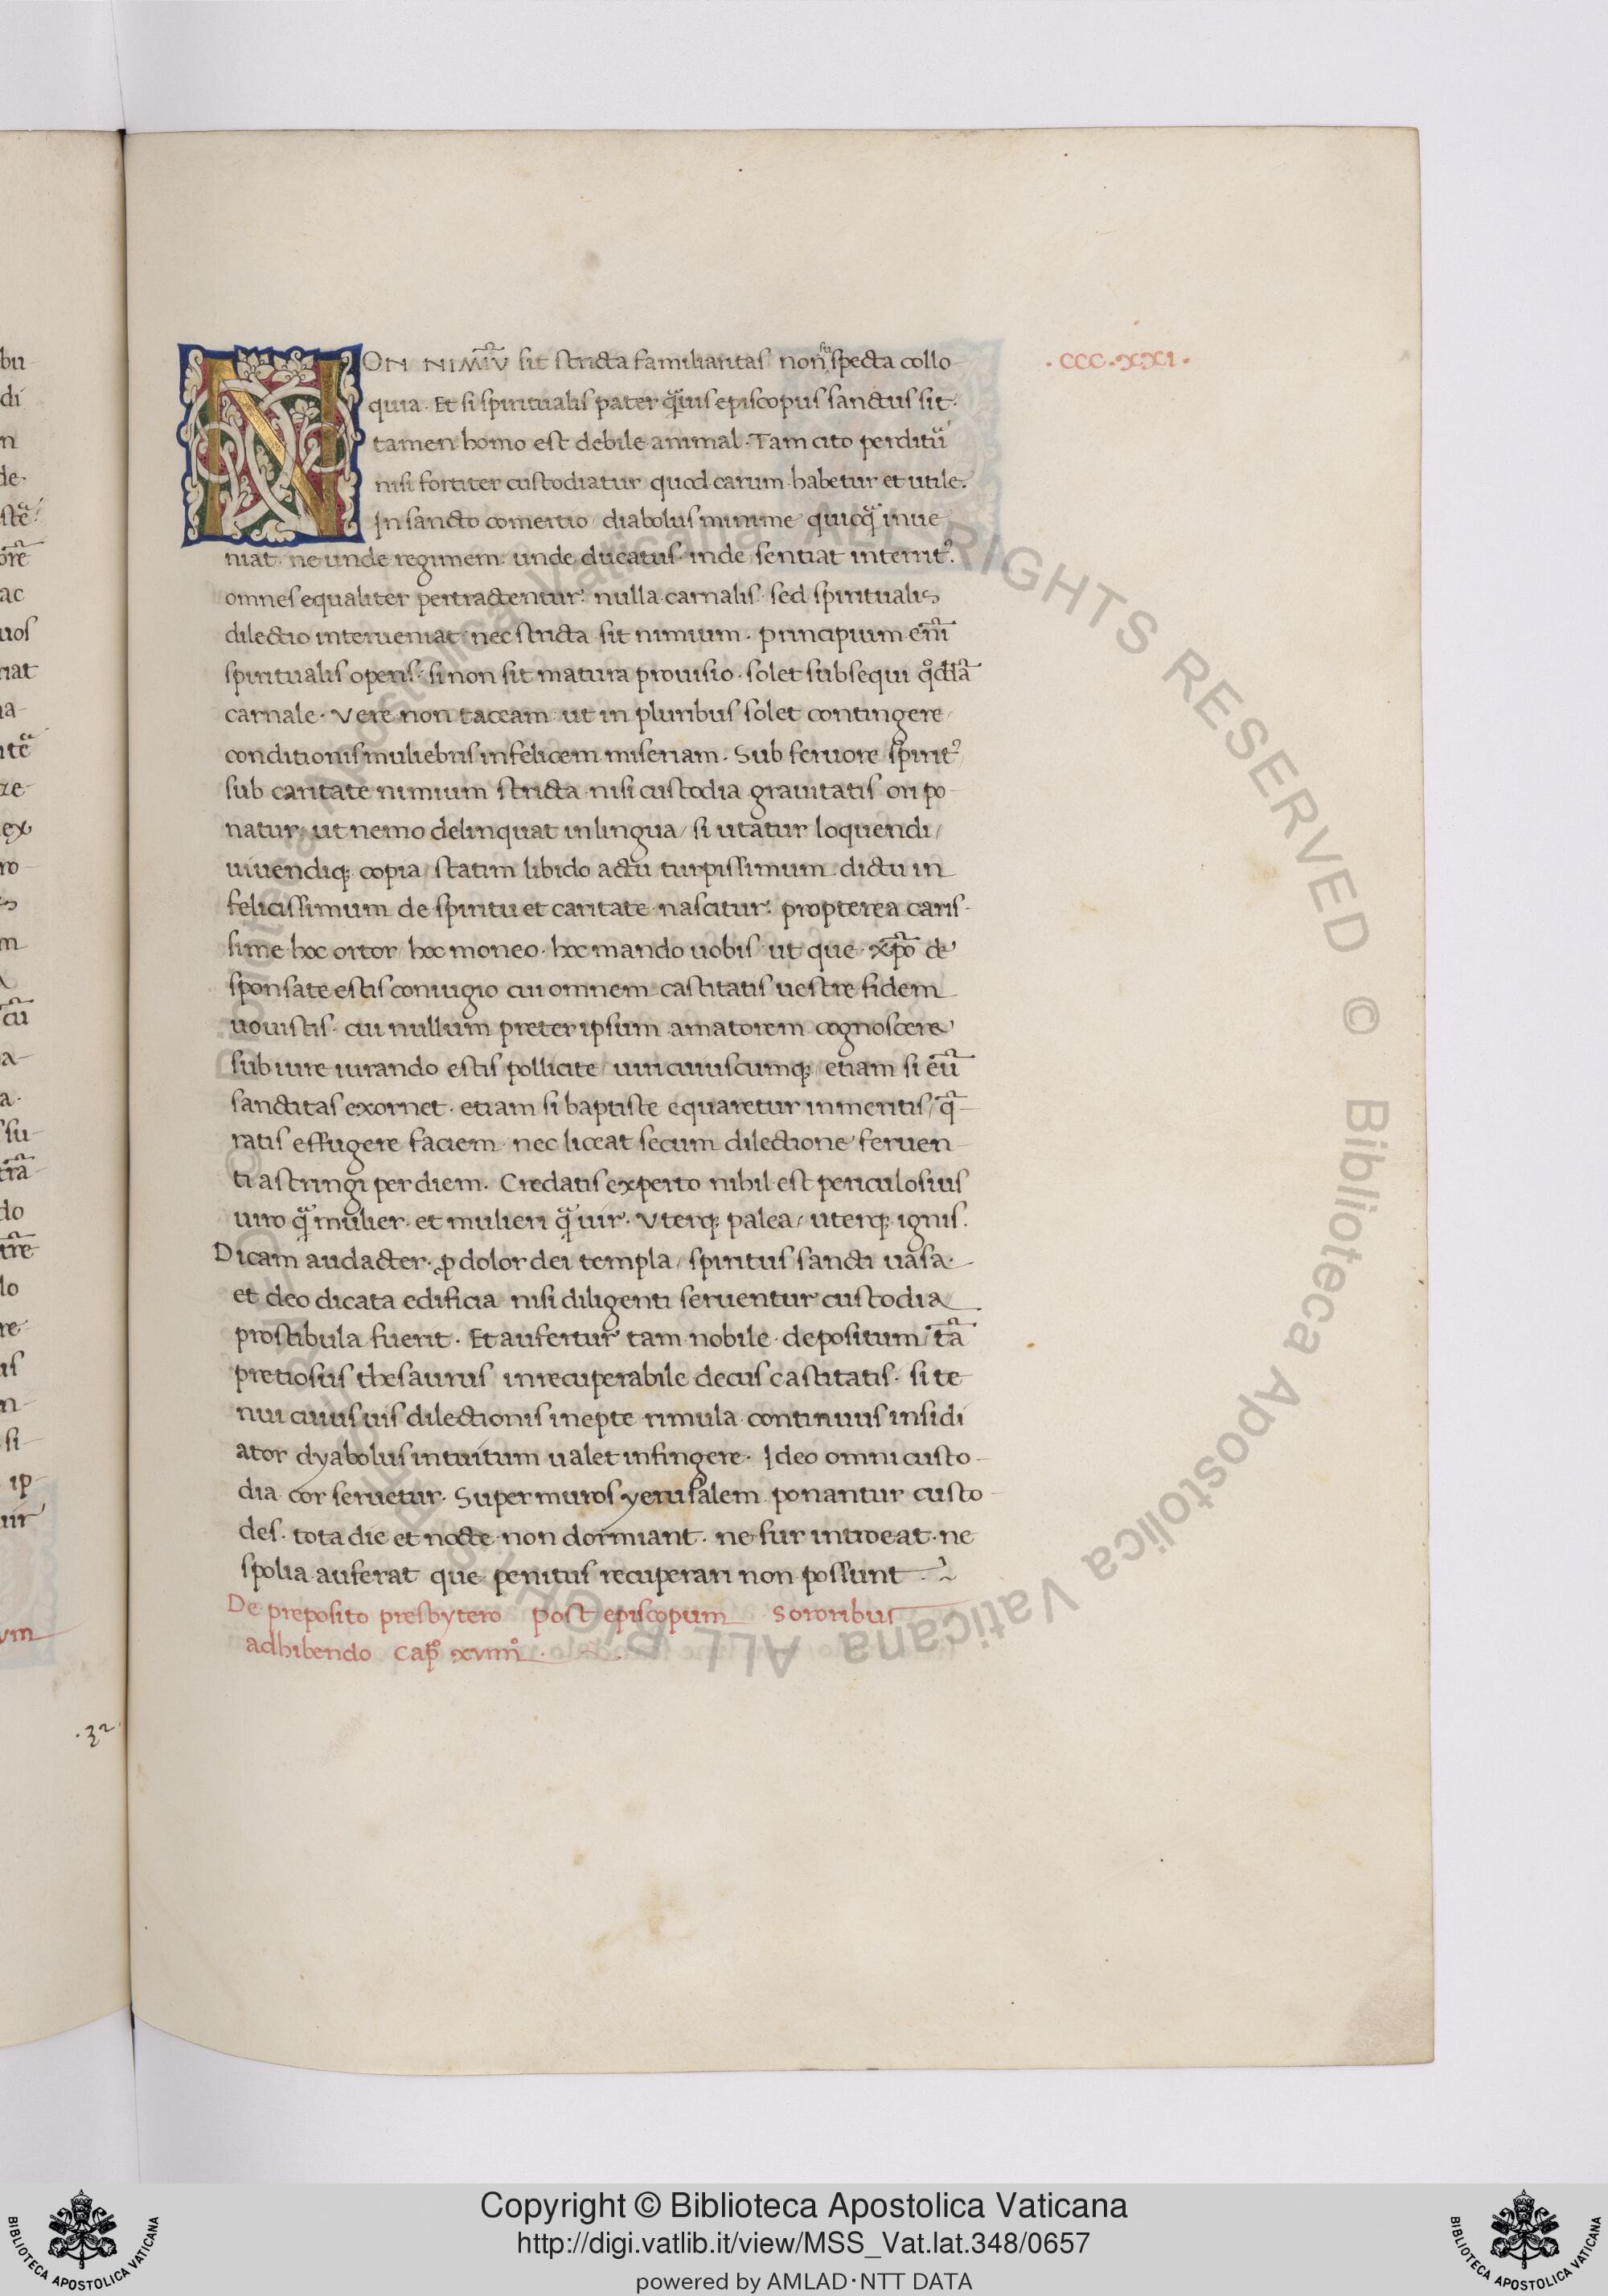 · CCC · XXI ·
NON NIMIV̄ sit stricta familiaritas non suspecta collo-
quia. Et si spiritualis pater q̄uis episcopus sanctus sit.
tamen homo est debile animal. Tam cito perditū
nisi fortiter custodiatur quod carum habetur et utile.
In sancto comertio diabolus minime quicq̄ inue
niat. ne unde regimen. unde ducatus. inde sentiat interrit⁹.
omnes equaliter pertractentur. nulla carnalis. sed spiritualis
dilectio interueniat nec stricta sit nimium. principium eni̅
spiritualis operis. si non sit matura prouisio. solet subsequi qͦdda̅
carnale. Vere non taceam ut in pluribus solet contingere
conditionis muliebris infelicem miseriam. Sub feruore spirit⁹
sub caritate nimium stricta nisi custodia grauitatis ori po-
natur. ut nemo delinquat in lingua / si utatur loquendi /
uiuendiq; copia / statim libido actu turpissimum dictu in
felicissimum de spiritu et caritate nascitur. propterea caris-
sime hoc ortor hoc moneo. hoc mando uobis ut que xp̅o de
sponsate estis coniugio cui omnem castitatis uestre fidem
uouistis. cui nullum preter ipsum amatorem cognoscere
sub iure iurando estis pollicite / uiri cuiuscumq; etiam si eu̅
sanctitas exornet. etiam si baptiste equaretur in meritis / q̄-
ratis effugere faciem. nec liceat secum dilectione feruen-
ti astringi per diem. Credatis experto nihil est periculosius
uiro q̄ mulier. et mulieri q̄ uir. Vterq; palea / uterq; ignis.
Dicam audacter. ꝓ dolor dei templa / spiritus sancti uasa.
et deo dicata edificia nisi diligenti seruentur custodia
prostibula fuerit. Et aufertur tam nobile depositum ta̅
pretiosus thesaurus inrecuperabile decus castitatis. si te
nui cuiusuis dilectionis inepte rimula continuus insidi
ator dyabolus intuitum ualet infingere. Ideo omni custo-
dia cor seruetur. Super muros yerusalem ponantur custo-
des. tota die et nocte non dormiant. ne fur introeat. ne
spolia auferat que penitus recuperari non possunt
De preposito presbytero post episcopum Sororibus
adhibendo Capͦ xviiiiͦ.
bu-
di
n
de.
ac
uos
riat
ex
ro-
m
cū
a-
a.
su-
do
lo
re
us
n-
si-
ip-
uir
vm
.32.
© Biblioteca Apostolica Vaticana ALL RIGHTS RESERVED © Biblioteca Apostolica Vaticana ALL RIGHTS RESERVED
Copyright © Biblioteca Apostolica Vaticana
http://digi.vatlib.it/view/MSS_Vat.lat.348/0657
powered by AMLAD·NTT DATA
BIBLIOTECA APOSTOLICA VATICANA
BIBLIOTECA APOSTOLICA VATICANA